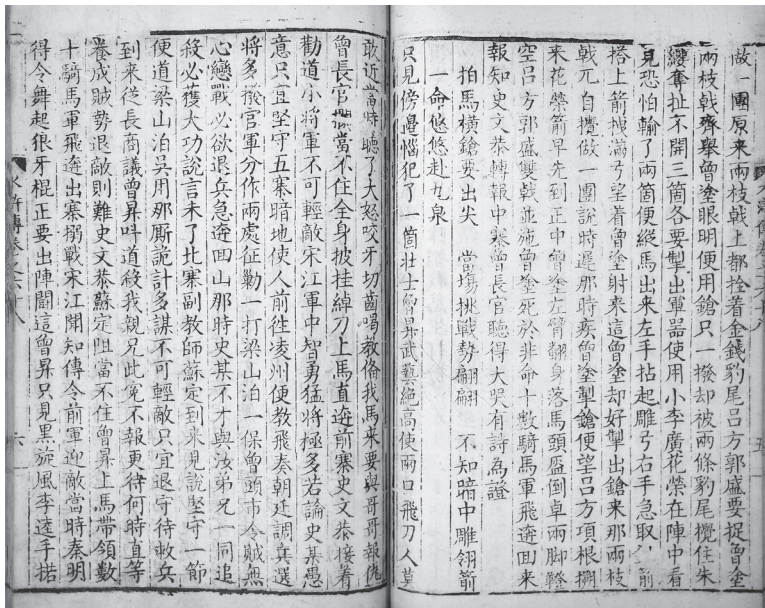 做一團原来兩枝戟上都拴着金錢豹尾吕方郭盛要捉曾塗
兩枝戟齊舉曾塗眼明便用鎗只一撥却被兩條豹尾攪住朱
纓奪扯不開三箇各要掣出軍器使用小李廣花榮在陣中看
見恐怕輸了兩箇便縱馬出来左手拈起雕弓右手急取
搭上箭拽滿弓望着曾塗射来這曾塗却好掣出鎗来那兩枝
戟兀自攪做一團說時遲那時疾曾塗掣鎗便望吕方項根搠
来花榮箭早先到正中曾塗左臂翻身落馬頭盔倒卓兩脚蹬
空吕方郭盛雙戟並施曾塗死於非命十數騎馬軍飛逩回来
報知史文恭轉報中寨曾長官聽得大哭有詩為證
拍馬横鎗要出尖 當塲挑戰勢翩翩 不知暗中雕翎箭
一命悠悠赴九泉
只見傍邊惱犯了一箇壮士曾昇武藝絶高使兩口飛刀人莫
敢近當時聽了大怒咬牙切齒喝教俻我馬来要與哥哥報仇
曾長官攔當不住全身披挂綽刀上馬直逩前寨史文恭接着
勸道小將軍不可輕敵宋江軍中智勇猛將極多若論史某愚
意只宜坚守五寨暗地使人前徃凌州便教飛奏朝廷調兵選
將多撥官軍分作兩處征勦一打梁山泊一保曾頭市令賊無
心戀戰必欲退兵急逩囬山那時史某不才與汝弟兄一同追
殺必獲大功說言未了比寨副教師蘇定到来見說堅守一節
便道梁山泊吴用那厮詭計多謀不可輕敵只宜退守待敕兵
到来從長商議曾昇呌道殺我親兄此寃不報更待何時直等
養成賊勢退敵則難史文恭蘇定阻當不住曾昇上馬帶領數
十騎馬軍飛逩出寨搦戰宋江聞知傳令前軍迎敵當時秦明
得令舞起狼牙棍正要出陣鬬這曾昇只見黑旋風李逵手掿
水滸傳卷之六十八
六